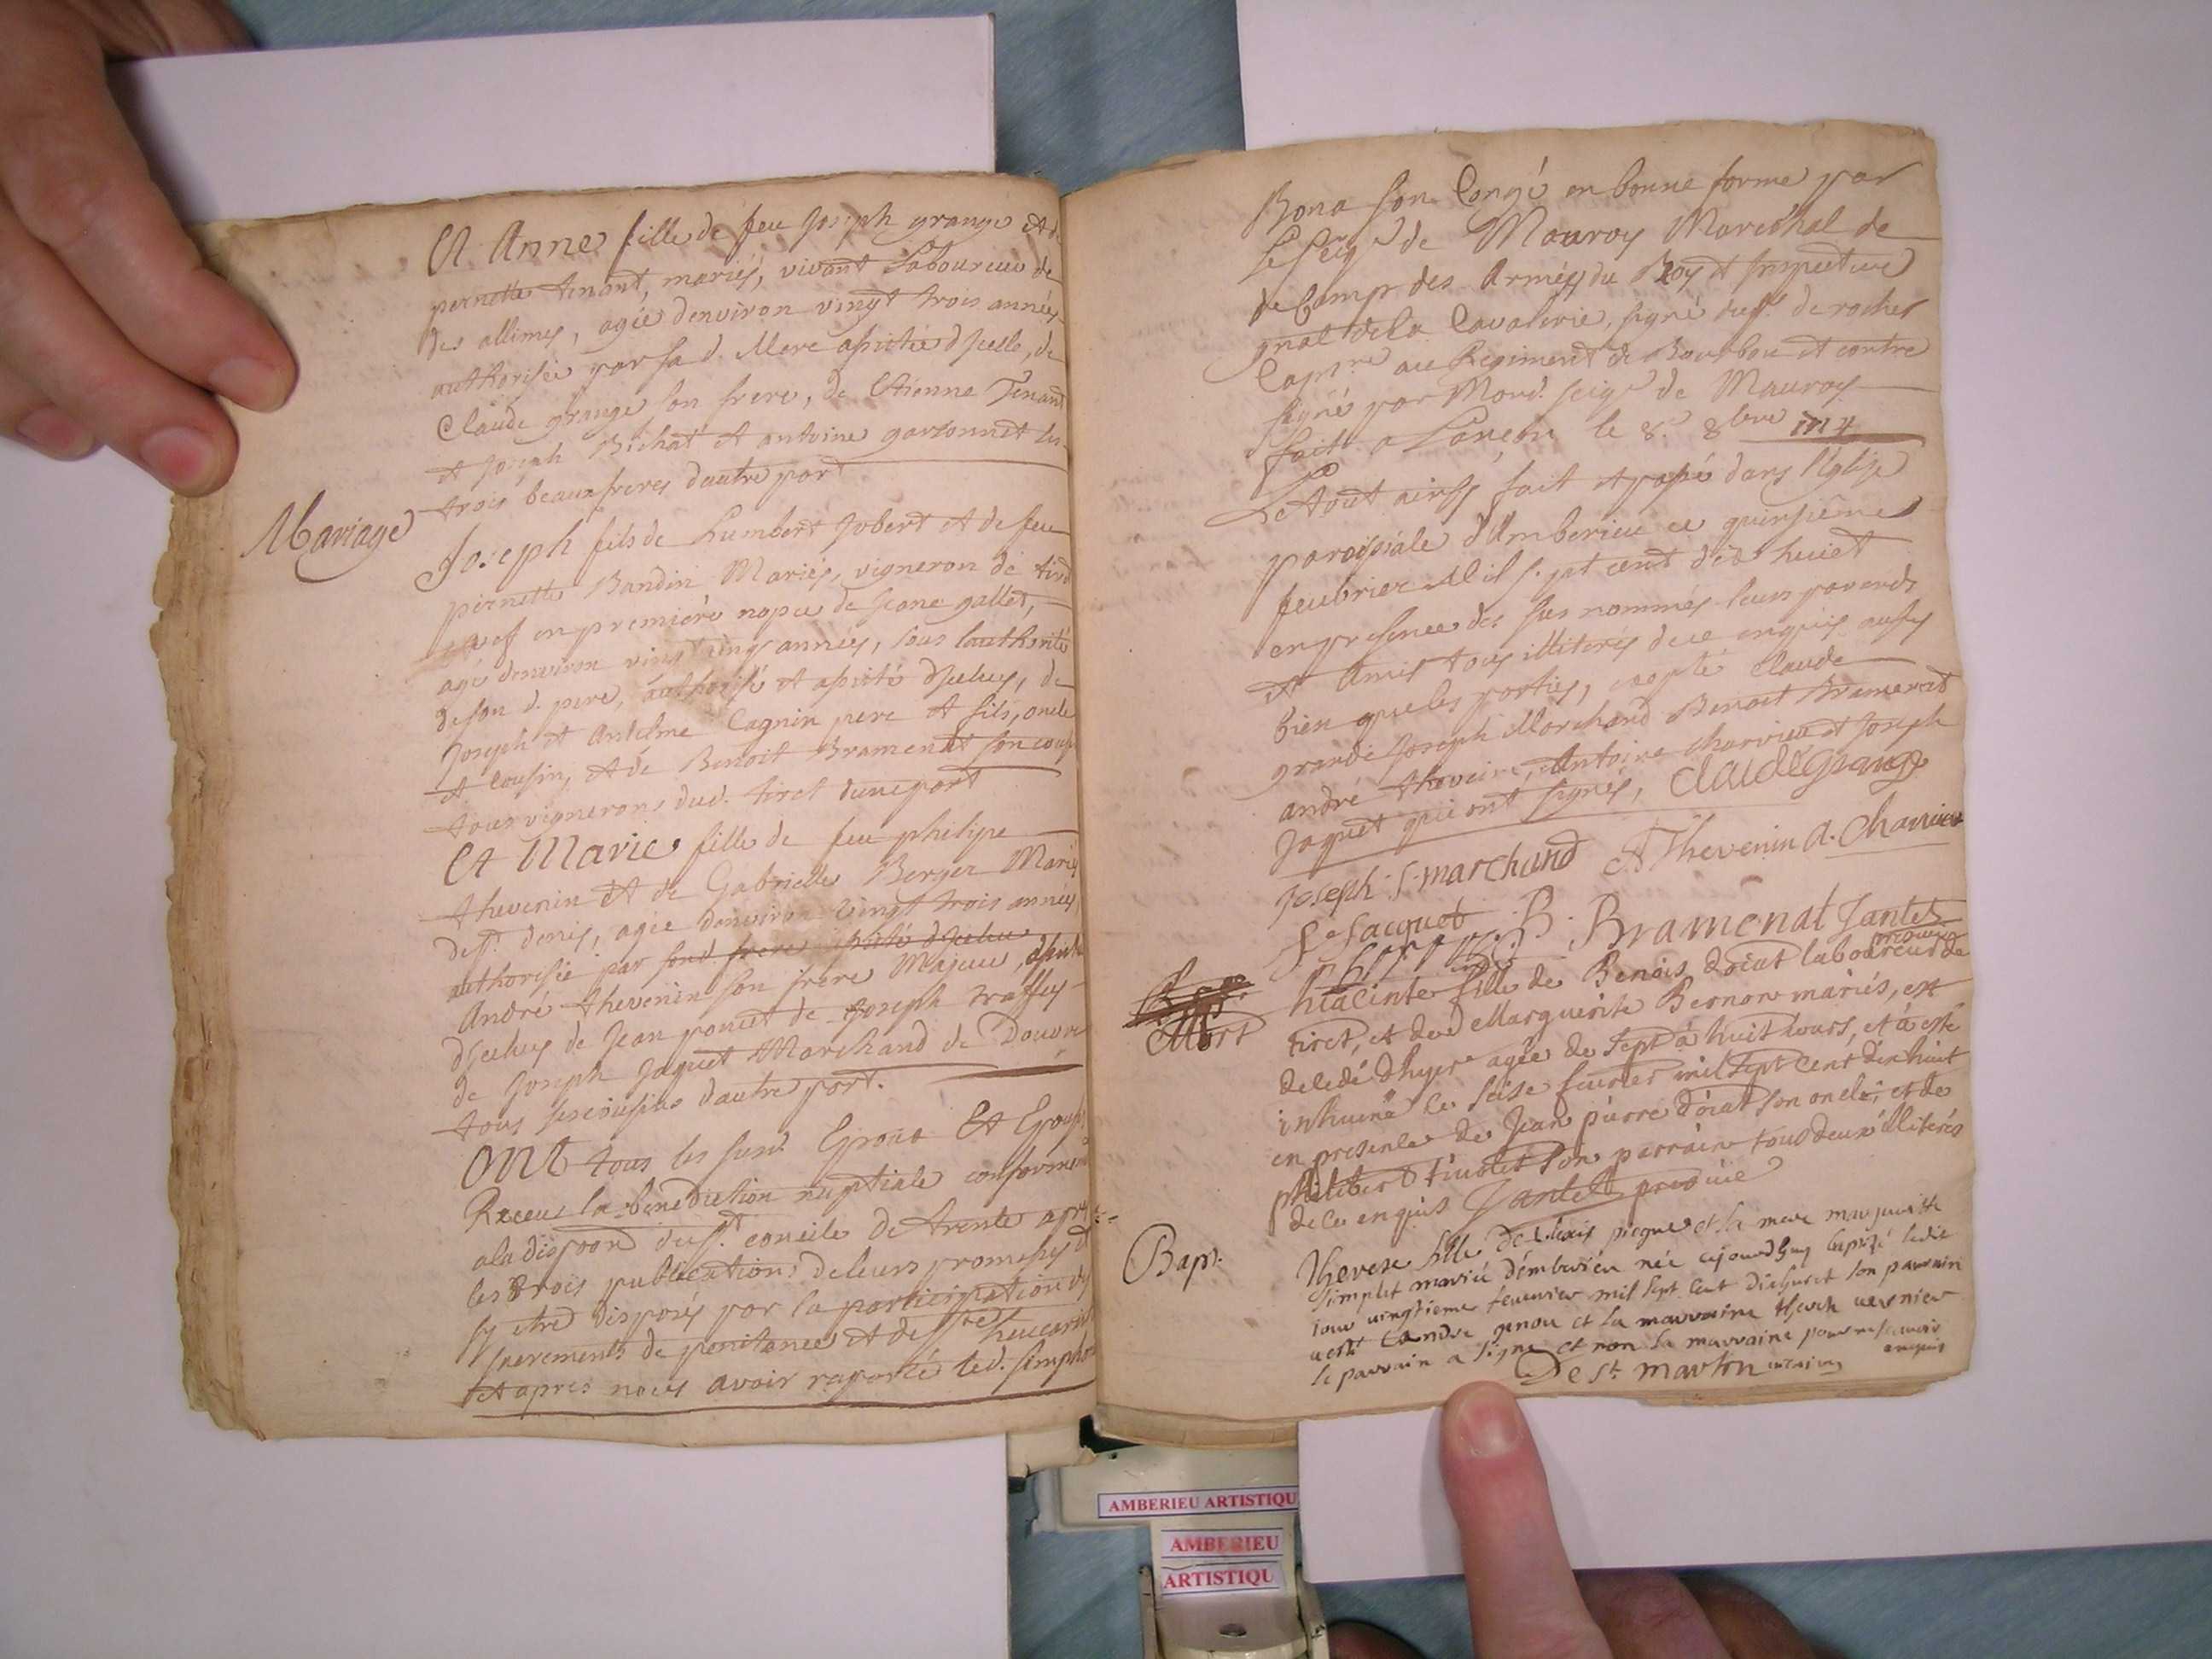 Et Anne fille de feu Joseph grange et de
pernette tenant, mariés, vivant laboureur de
des allimes, agée denviron vingt trois années
authorisée par sa d. Mere assistée d'jcelle, de
Claude grange son frere, de Etienne Tenant
et Joseph Bichat et antoine garronnet ses
trois beaux freres dautre part
Mariage
Joseph fils de Humbert Jobert et de feue
pernette Bandin Mariés, vigneron de tiret
veuf en premiere nopce de Jeane gallet,
agé denviron vingt cinq années, sous lauthorité
de son d. pere, authorisé et assisté d'jceluy, de
Joseph et Anselme Cagnin pere et fils, oncle
et cousin, et de Benoit Bramenat son cousin
tous vignerons dud. tiret dune part
Et Marie fille de feu philipe
thevenin et de Gabrielle Berger Mariés
de st. denis, agée denviron vingt trois années
authorisée par sond. frere assisté d'jceluy
André thevenin son frere Majeur, assistée
d'jceluy de Jean poncet de Joseph traffey
de Joseph Jaquet Marchand de Douvre
tous ses cousins dautre part.
Ont tous les susd. Epoux Et Epouses
Receu la benediction nuptiale conformement
a la dispoon du st. concile de trente apres
les trois publications de leurs promesses et
sy etre disposés par la participation des
sacrements de penitence et de sste heucaristie
et apres nous avoir raporté led. simphorien
Bona son Congé en bonne forme par
le seigr de Mauroy Maréchal de
de Camp des Armées du Roy et inspecteur
gnal de la Cavalerie, signé du sr. de rocher
Capne au Regiment de Bourbon et contre
signé par Mond. seigr de Mauroy
fait a le 8e 8bre 1717
Le tout ainsy fait et passé dans l'Eglise
paroissiale d'Amberieu ce quinsième
feubrier Mil sept cent dix huict
en presence des sus nommés leurs parents
et Amis tous illiterés de ce enquis aussy
bien que les parties, excepté Claude
grange Joseph Marchand Benoit Bramenat
andré thevenin, Antoine charvieu et Joseph
Jaquet qui ont signés, Claude Grange
Joseph S. marchand A Thevenin A. Charvieu
Jo Jacquet B. Bramenat Jantet
procurie
Mort
hiacinte fille de Benois doeat laboureur de
tiret, et de Marguerite Bernon mariés, est
decedé dhyer agée de sept à huit jours, et à esté
inhumé ce seise feurier mil sept cent dix huit
en presence de Jean pierre doeat son oncle, et de
philibert tiuolet son parrain tous deux illiterés
de ce enquis Jantet procuie
Bapt.
Therese fille de Alexis piegne et la mere marguerite
simplet mariés d'emberieu née aujourdhuy baptisé ledit
jour uingtieme feuurier mil sept cent dixhuict son parrain
est andre genou et la marraine therese uernier
le parrain a signe et non la marraine pour ne scauoir
enquis
De St marton uicaire
AMBERIEU ARTISTIQU
AMBERIEU
ARTISTIQU